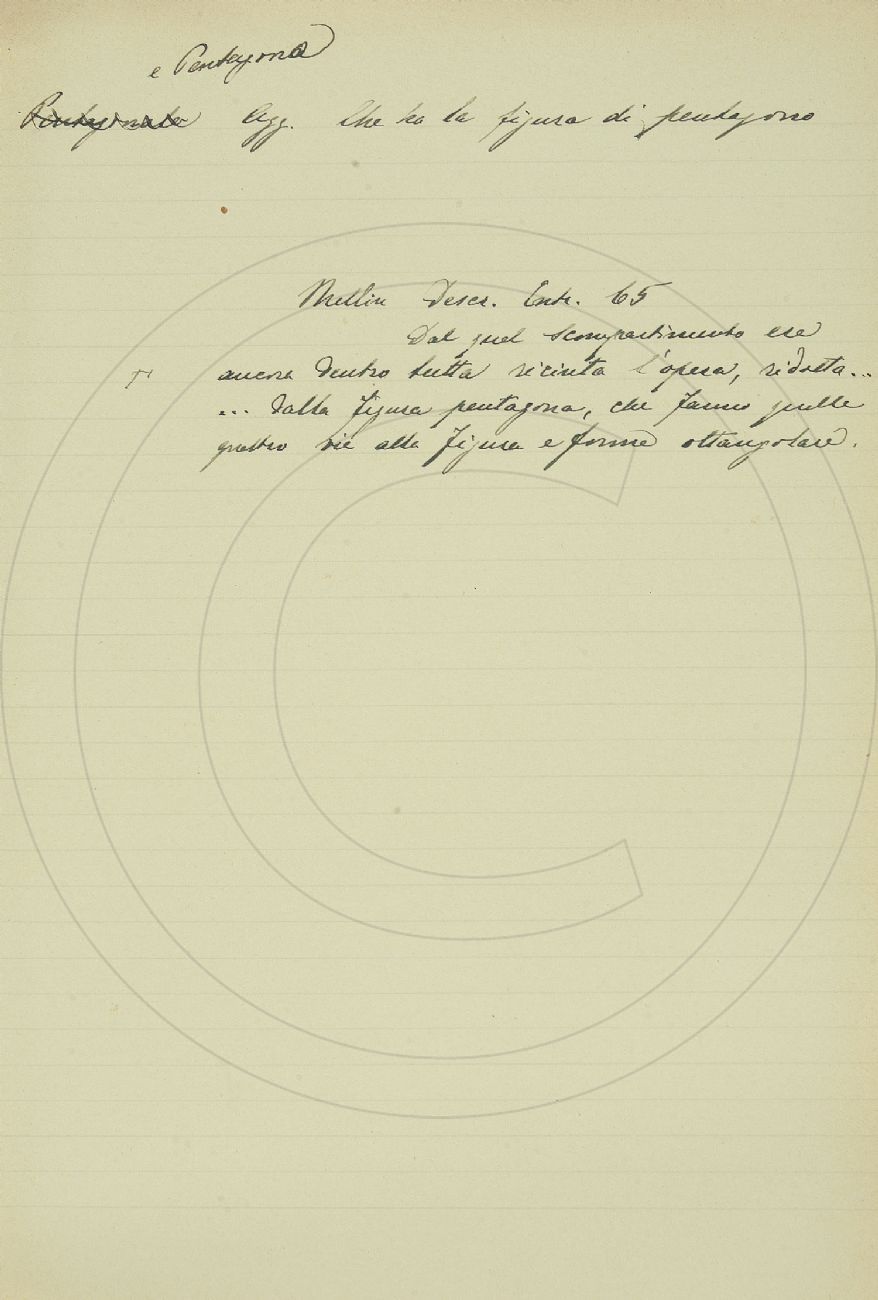 e Pentagona
Pentagonale Agg. Che ha la figura di pentagono
Mellin Descr. Entr. 65
Dal quel scompartimento era
ancora dentro tutta ricinta l'opera, ridotta...
... dalla figura pentagona, che fanno quelle
quattro vie alla figura e forma ottangolare.